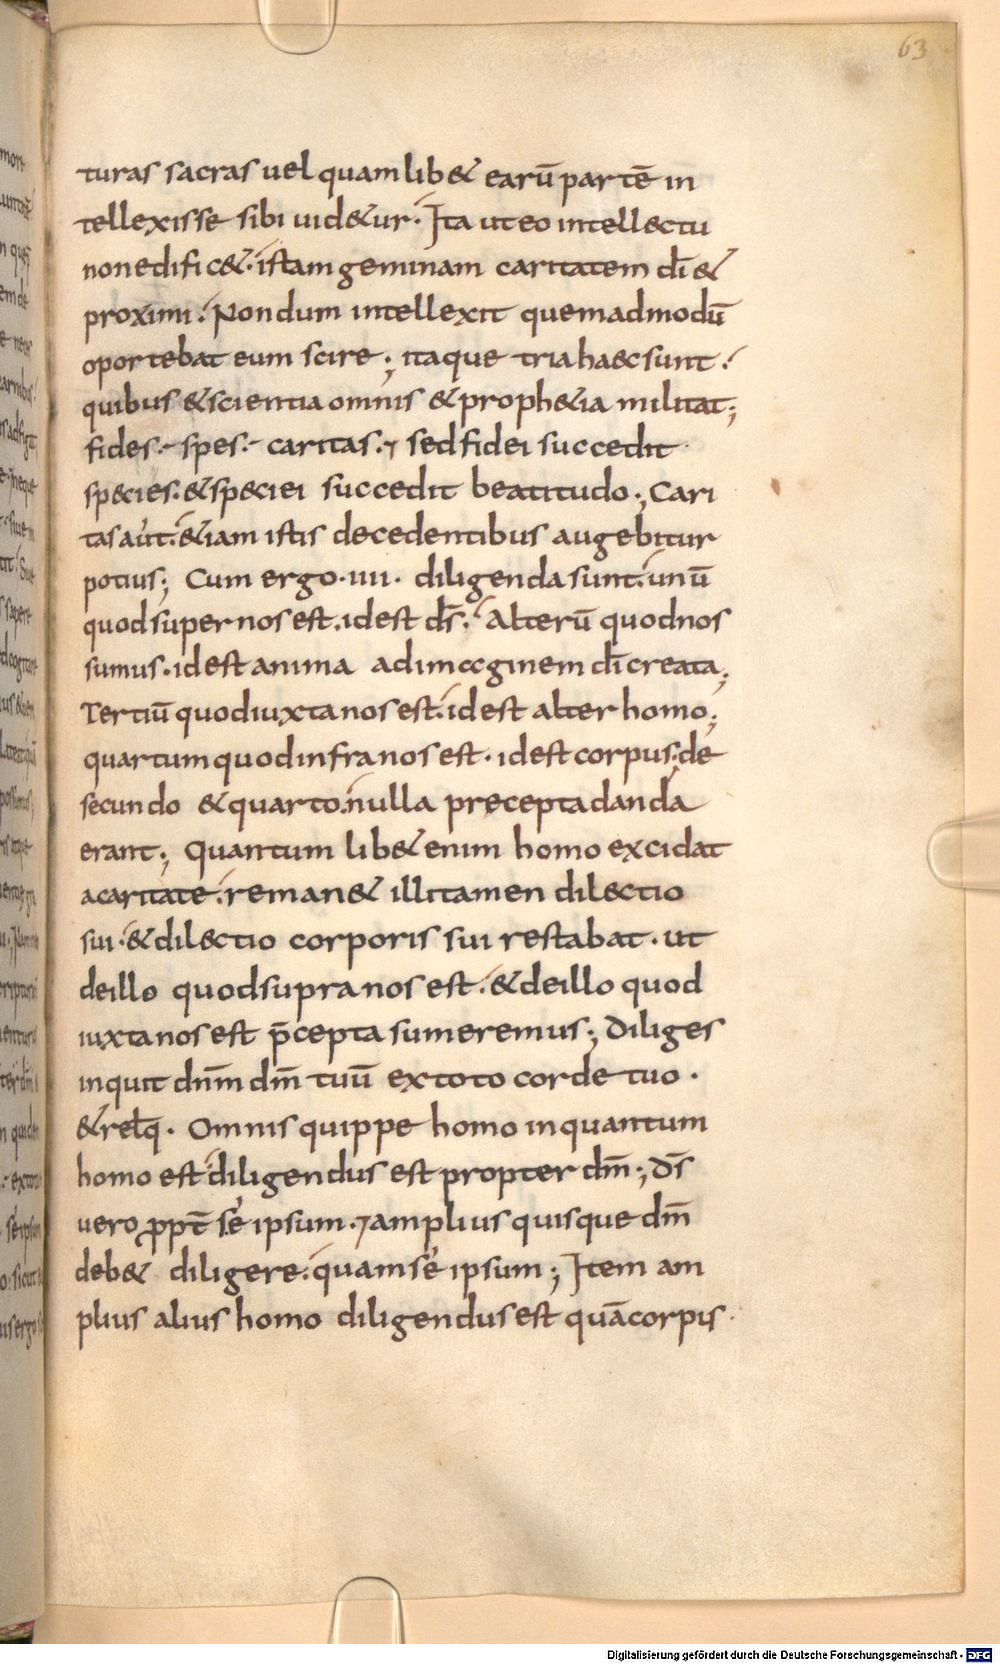 63
turas sacras uel quamlib& earū partē in
tellexisse sibi uid&ur. Ita ut eo intellectu
non edific&. istam geminam caritatem dī &
proximi. Nondum intellexit quemadmodū
oportebat eum scire; itaque tria haec sunt.
quibus & scientia omnis & proph&ia militat;
fides. spes. caritas. sed fidei succedit
species. & speciei succedit beatitudo; Cari
tas aut. &iam istis decedentibus augebitur
potius; Cum ergo .iiii. diligenda sunt. unū
quod super nos est. id est ds̄. Alterū quod nos
sumus. id est anima ad imaginem dī creata;
Tertiū quod iuxta nos est. id est alter homo;
quartum quod infra nos est. id est corpus; de
secundo & quarto. nulla precepta danda
erant; Quantum lib& enim homo excidat
a caritate. reman& illi tamen dilectio
sui. & dilectio corporis sui restabat. ut
de illo quod supra nos est. & de illo quod
iuxta nos est p̄cepta sumeremus; Diliges
inquit dnm̄ dm̄ tuū ex toto corde tuo.
& relq̄. Omnis quippe homo in quantum
homo est diligendus est propter dm̄; Ds̄
uero ppt̄ se ipsum. 7 amplius quisque dm̄
deb& diligere. quam se ipsum; Item am
plius alius homo diligendus est quā corpus.
Digitalisierung gefördert durch die Deutsche Forschungsgemeinschaft - DFG